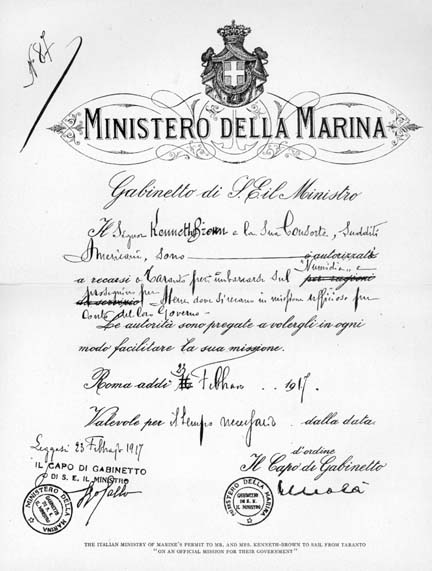 N. 87
MINISTERO DELLA MARINA
Gabinetto di S. E. il Ministro
Il Signor Kenneth Brown e la Sua Consorte, Sudditi
Americani, sono è autorizzato
a recarsi a Taranto per imbarcarsi sul "Numidia" e per ragioni
proseguire per Atene dove si recano in missione d'ufficio per
di servizio
conto del loro Governo.
Le autorità sono pregate a volergli in ogni
modo facilitare la sua missione.
Roma addì 23 Febbraio 1917.
Valevole per il tempo necessario dalla data
Leggasi 23 Febbraio 1917
IL CAPO DI GABINETTO
DI S. E. IL MINISTRO
MINISTERO DELLA MARINA
GABINETTO DI S. E. IL MINISTRO
d'ordine
Il Capo di Gabinetto
MINISTERO DELLA MARINA
GABINETTO DI S. E. IL MINISTRO
THE ITALIAN MINISTRY OF MARINE'S PERMIT TO MR. AND MRS. KENNETH-BROWN TO SAIL FROM TARANTO
"ON AN OFFICIAL MISSION FOR THEIR GOVERNMENT"